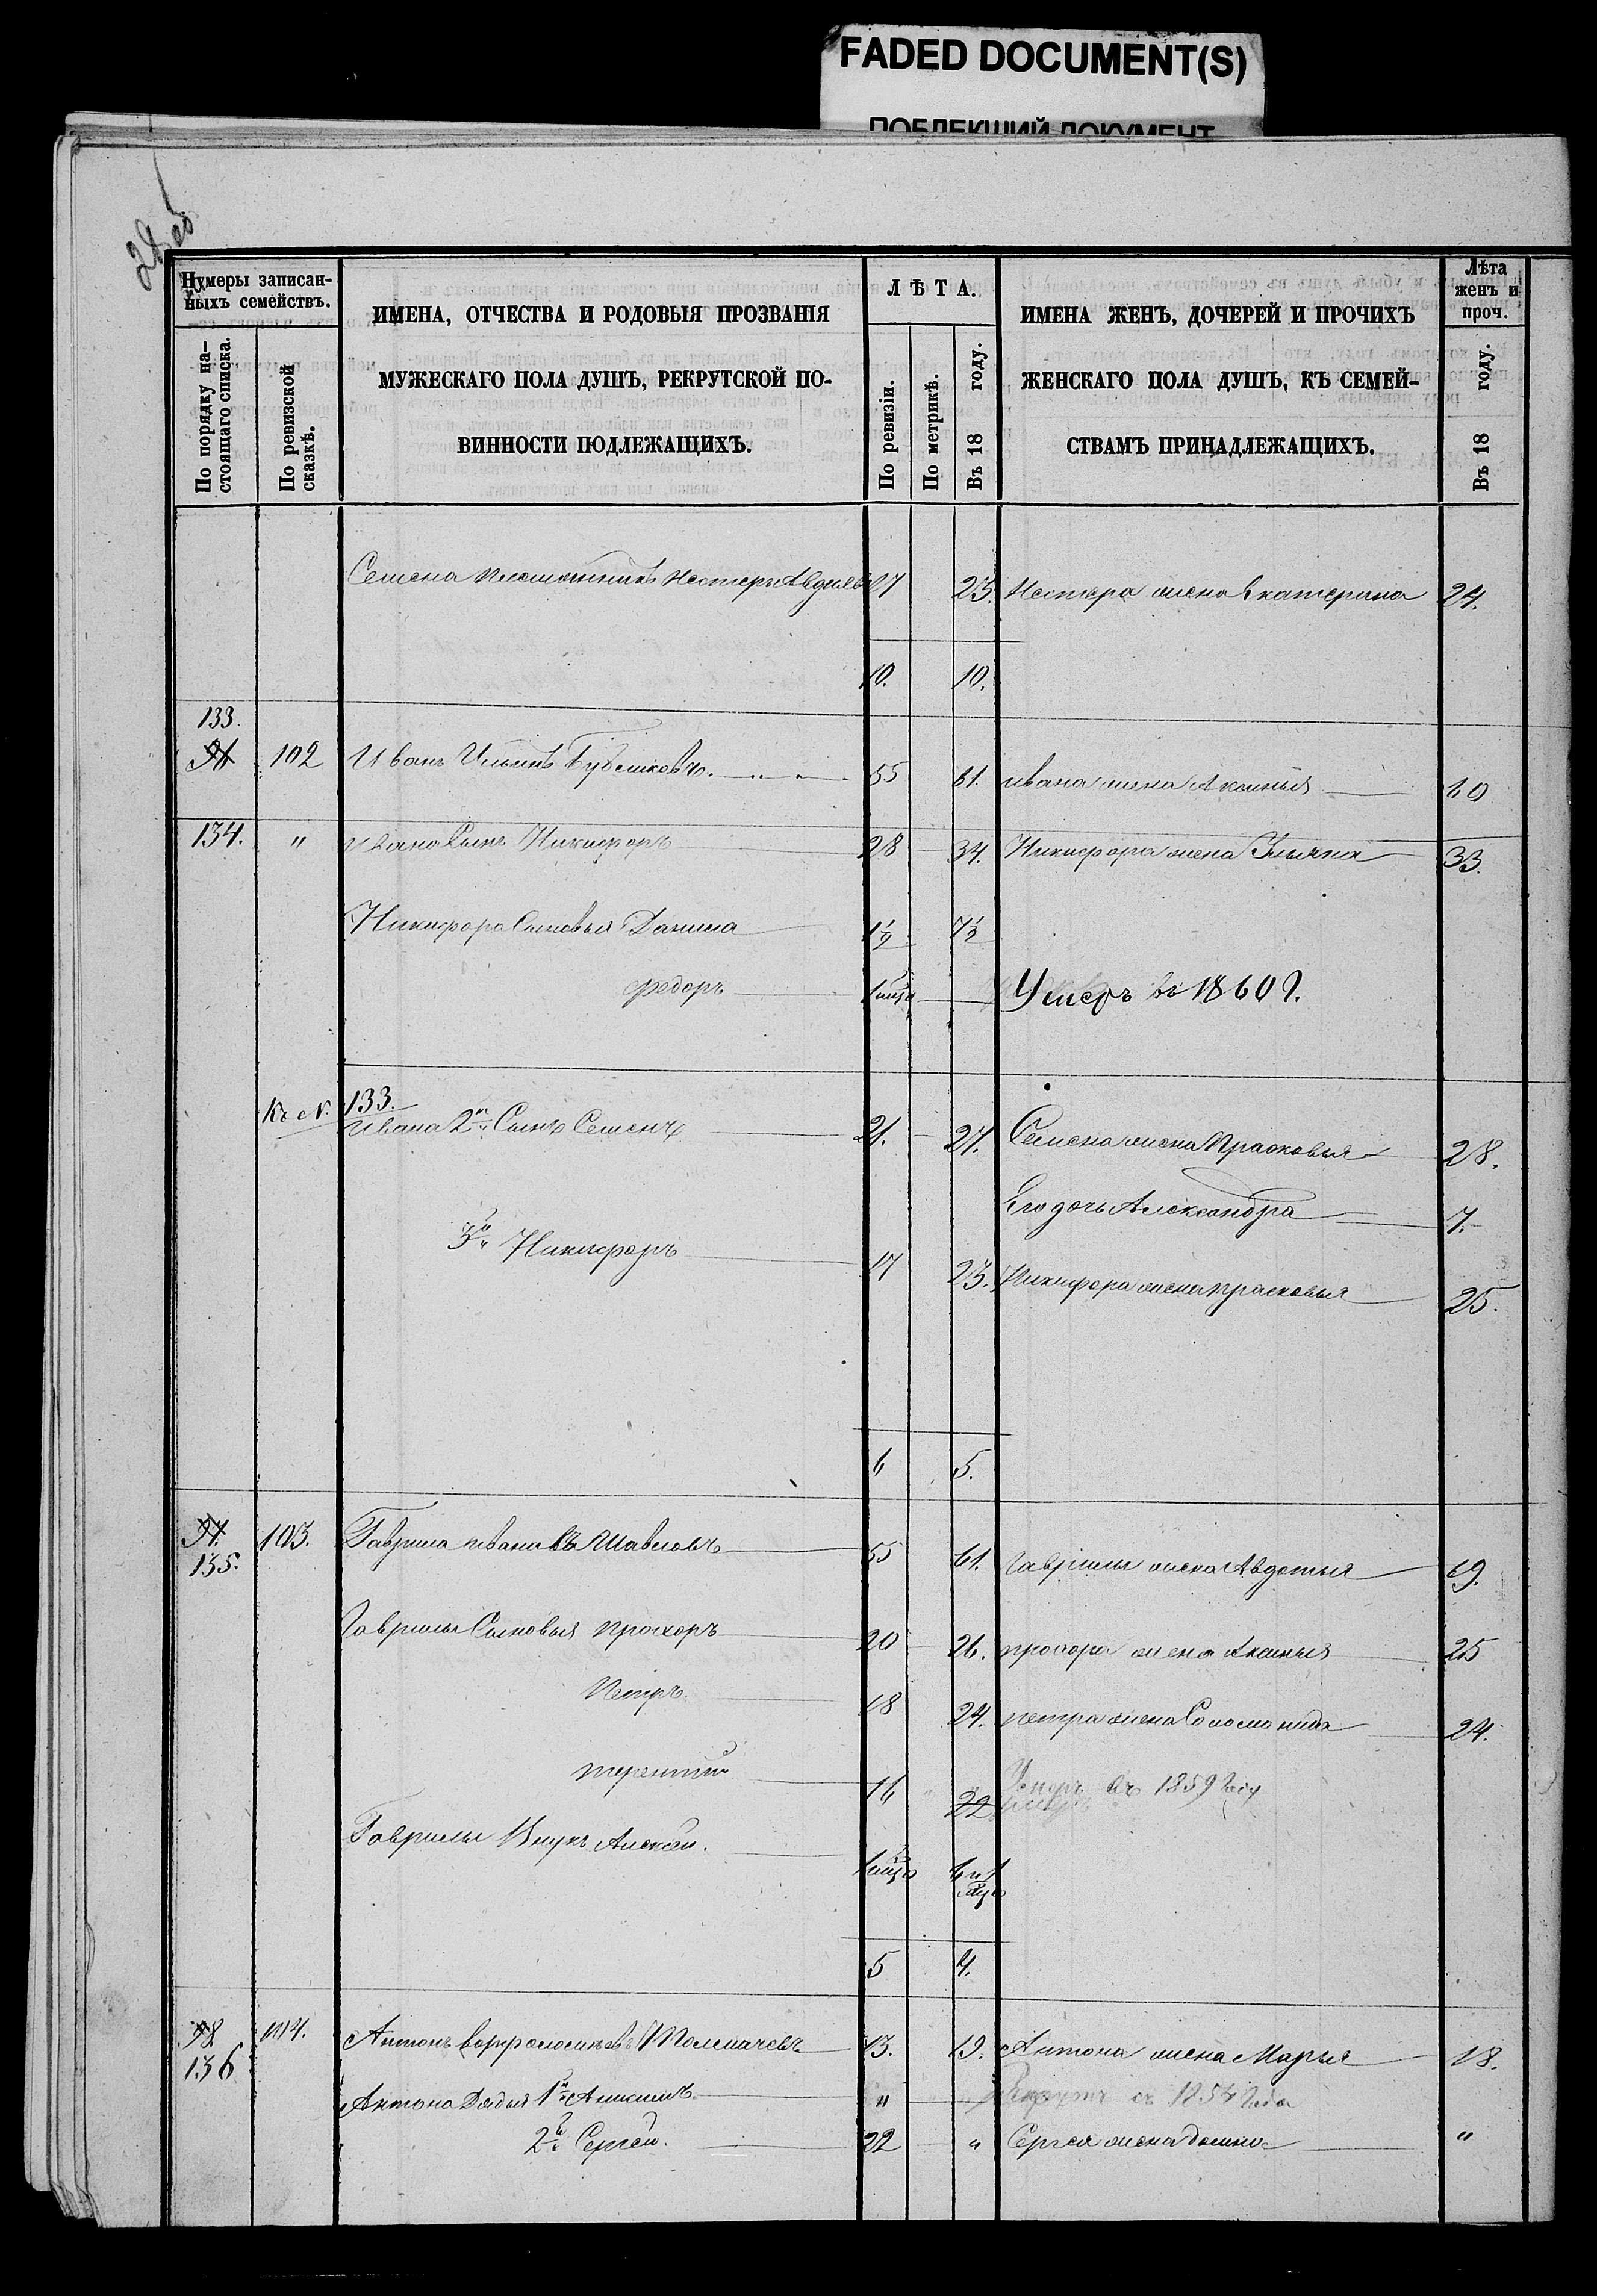 FADED DOCUMENT(S)
ПОБЛЕКШИЙ ДОКУМЕНТ
28 об
Нумеры записан-
ныхъ семействъ.
По порядку на-
стоящаго списка.
По ревизской
сказкѣ.
ИМЕНА, ОТЧЕСТВА И РОДОВЫЯ ПРОЗВАНІЯ
МУЖЕСКАГО ПОЛА ДУШЪ, РЕКРУТСКОЙ ПО-
ВИННОСТИ ПОДЛЕЖАЩИХЪ.
ЛѢТА.
По ревизіи.
По метрикѣ.
Въ 18 году.
ИМЕНА ЖЕНЪ, ДОЧЕРЕЙ И ПРОЧИХЪ
ЖЕНСКАГО ПОЛА ДУШЪ, КЪ СЕМЕЙ-
СТВАМЪ ПРИНАДЛЕЖАЩИХЪ.
Лѣта
женъ и
проч.
Въ 18 году.
Семена племянникъ Нестеръ Авдѣевъ 17 23. Нестера жена Екатерина 24.
10. 10.
133.
102 Иванъ Ильинъ 55 61. Ивана жена Аксинья 60
134. " Ивана Сынъ Никифоръ 28 34. Никифора жена Ульяна 33.
Никифора Сыновья Данила 1½ 7½
Федоръ Умеръ въ 1860 г.
Къ N. 133.
Ивана 2й Сынъ Семенъ 21. 27. Семена жена Прасковья 28.
Его дочь Александра 7.
3й Никифоръ 17 23. Никифора жена Прасковья 25.
6 5.
135. 103. Гаврила Ивановъ 55 61. Гаврилы жена Авдотья 69.
Гаврилы Сыновья Прохоръ 20 26. Прохора жена Аксинья 25
Петръ. 18 24. Петра жена Соломонида 24.
Терентий 16 22 Умеръ въ 1859 году
Гаврилы Внукъ Алексѣй.
5 4.
136 104. Антонъ 13. 19. Антона жена Марья 18.
Антона Дядья 1й Анисимъ " Рекрутъ съ 1854 года
2й Сергей. 22 " Сергея жена Домна "